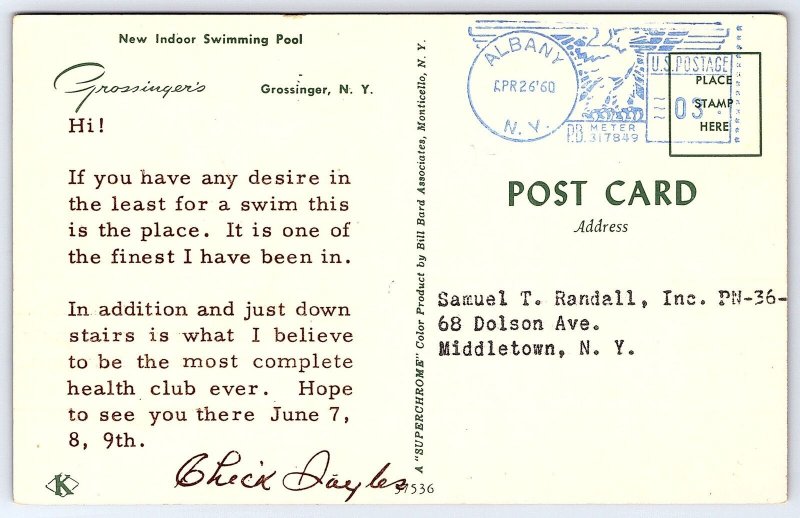 New Indoor Swimming Pool
Grossinger's Grossinger, N. Y.
Hi!
If you have any desire in
the least for a swim this
is the place. It is one of
the finest I have been in.
In addition and just down
stairs is what I believe
to be the most complete
health club ever. Hope
to see you there June 7,
8, 9th.
Chick Sayles
K
37536
A "SUPERCHROME" Color Product by Bill Bard Associates, Monticello, N. Y.
ALBANY
APR 26 '60
N. Y.
P.B. METER
317849
U.S. POSTAGE
03
PLACE
STAMP
HERE
POST CARD
Address
Samuel T. Randall, Inc. PN-36-
68 Dolson Ave.
Middletown, N. Y.